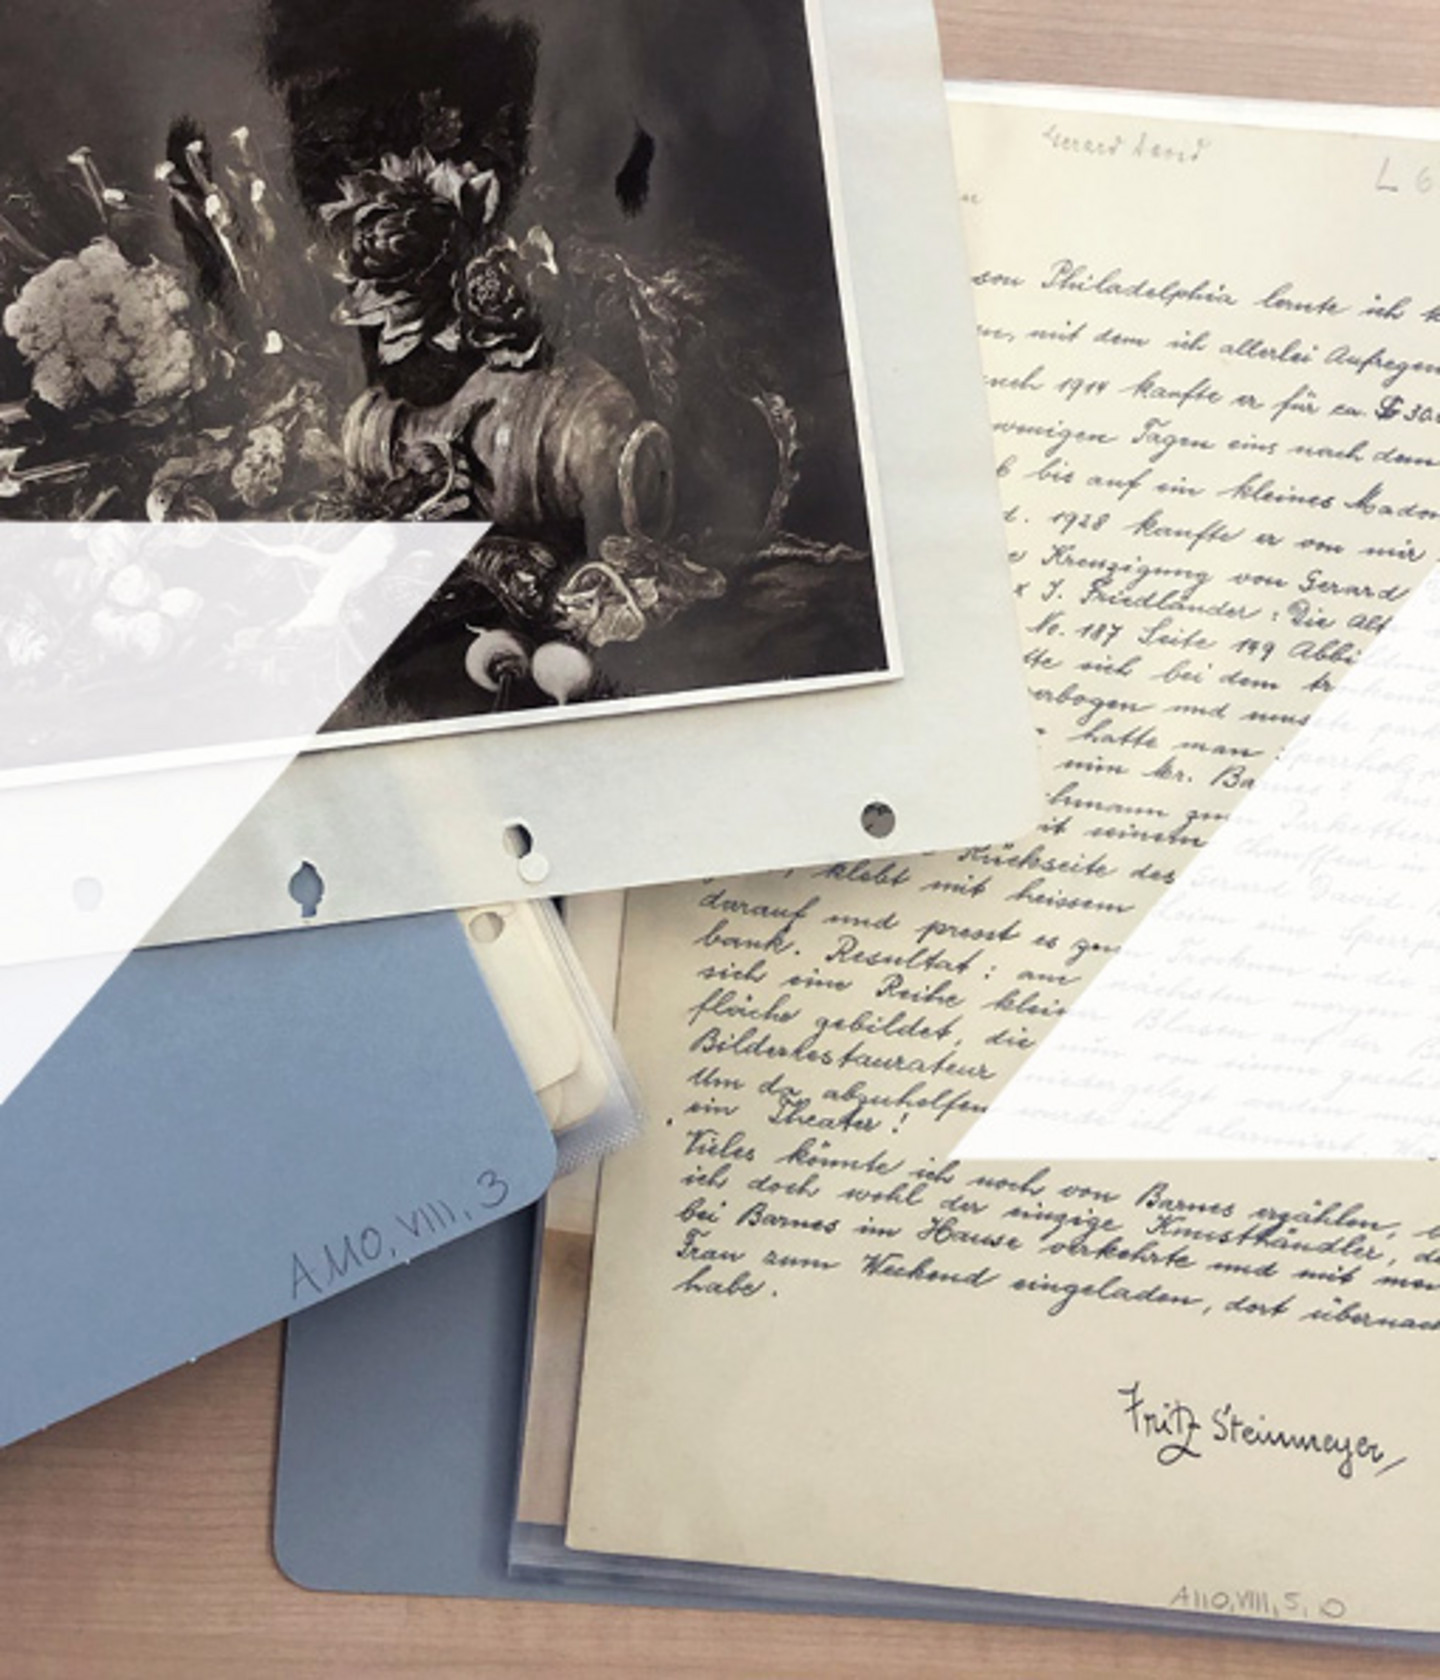 Gerard David
L 6
son Philadelphia lernte ich k
en, mit dem ich allerlei Aufregen
1914 kaufte er für ca. $ 30.
wenigen Tagen eins nach dem
bis auf ein kleines Madon
d. 1928 kaufte er von mir
e Kreuzigung von Gerard
x J. Friedländer: Die Alt
No. 187 Seite 149 Abbildung
tte sich bei dem
erbogen und musste
hatte man: Sperrholz
nun Mr. Barnes?
hmann zum
it seinem Chauffeur
Rückseite des Gerard David
klebt mit heissem Leim eine Sperrp
darauf und presst es zum Trocknen in die
bank. Resultat: am nächsten morgen
sich eine Reihe kleiner Blasen auf der B
fläche gebildet, die nun von einem
Bilderrestaurateur niedergelegt werden
Um da abzuhelfen wurde ich alarmiert.
ein Theater!
Vieles könnte ich noch von Barnes erzählen,
ich doch wohl der einzige Kunsthändler, de
bei Barnes im Hause verkehrte und mit
Frau zum Weekend eingeladen, dort übernach
habe.
Fritz Steinmeyer
A110,VIII,5,
A110,VIII,3